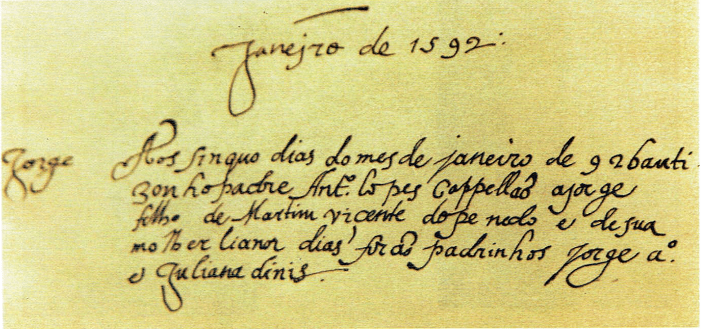 Janeiro de 1592:
Jorge
Aos sinquo dias do mes de janeiro de 92 bauti
zou ho padre Antº. lopes Cappellaõ a jorge
filho de Martim vicente do penedo e de sua
molher lianor dias, foraõ padrinhos Jorge aº.
e Juliana dinis.